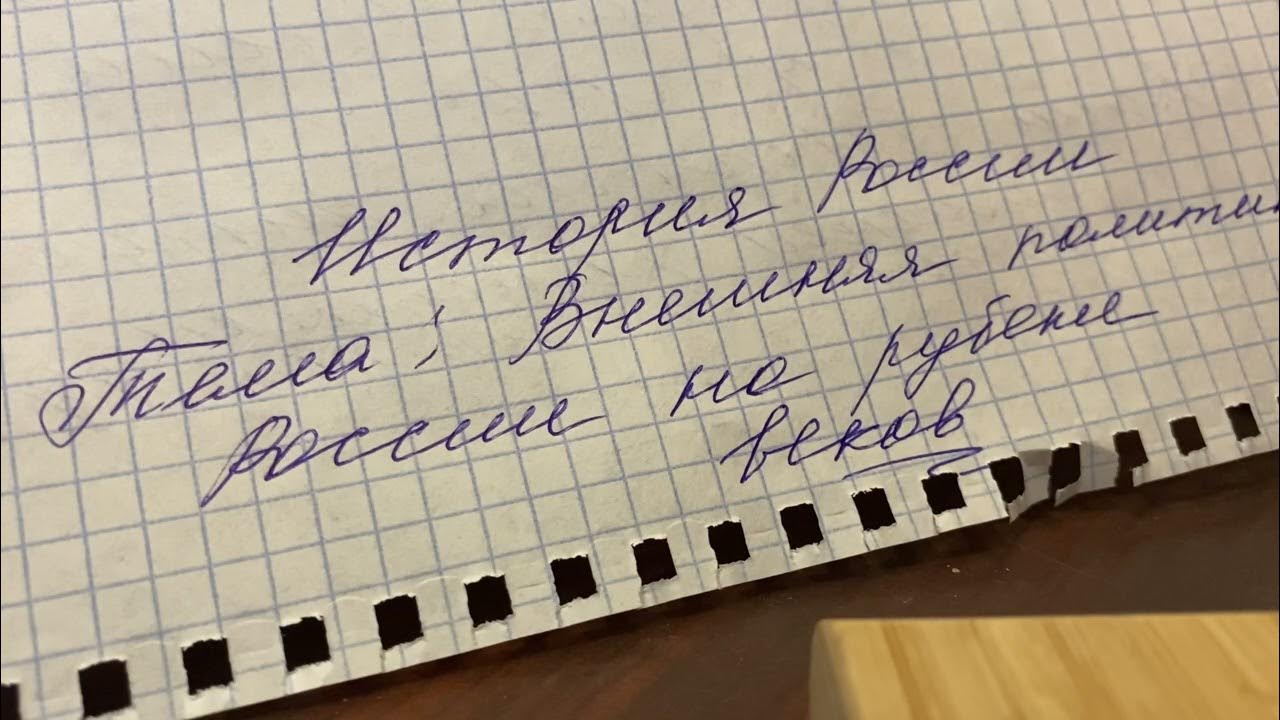 История России
Тема: Внешняя полити
России на рубеже
веков